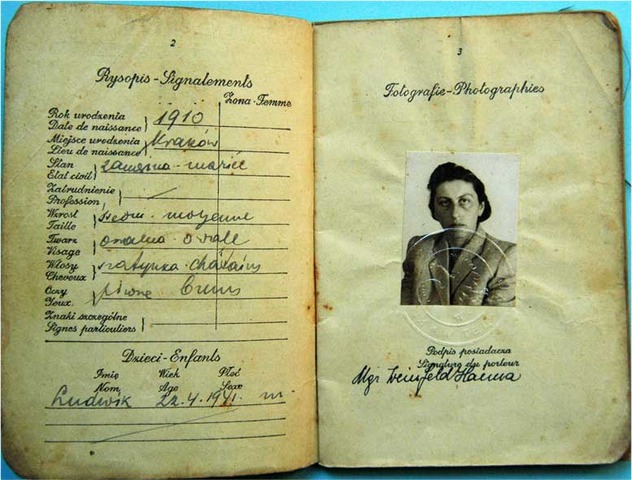 2
Rysopis-Signalements
Żona-Femme
Rok urodzenia
Date de naissance
1910
Miejsce urodzenia
Lieu de naissance
Kraków
Stan
Etat civil
zamężna - mariée
Zatrudnienie
Profession
Wzrost
Taille
średni - moyenne
Twarz
Visage
owalna - ovale
Włosy
Cheveux
szatynka - châtains
Oczy
Yeux
piwne bruns
Znaki szczególne
Signes particuliers
Dzieci-Enfants
Imię Wiek Płeć
Nom Age Sexe
Ludwik 22.4.1941. m
3
Fotografie-Photographies
Podpis posiadacza
Signature du porteur
Mgr